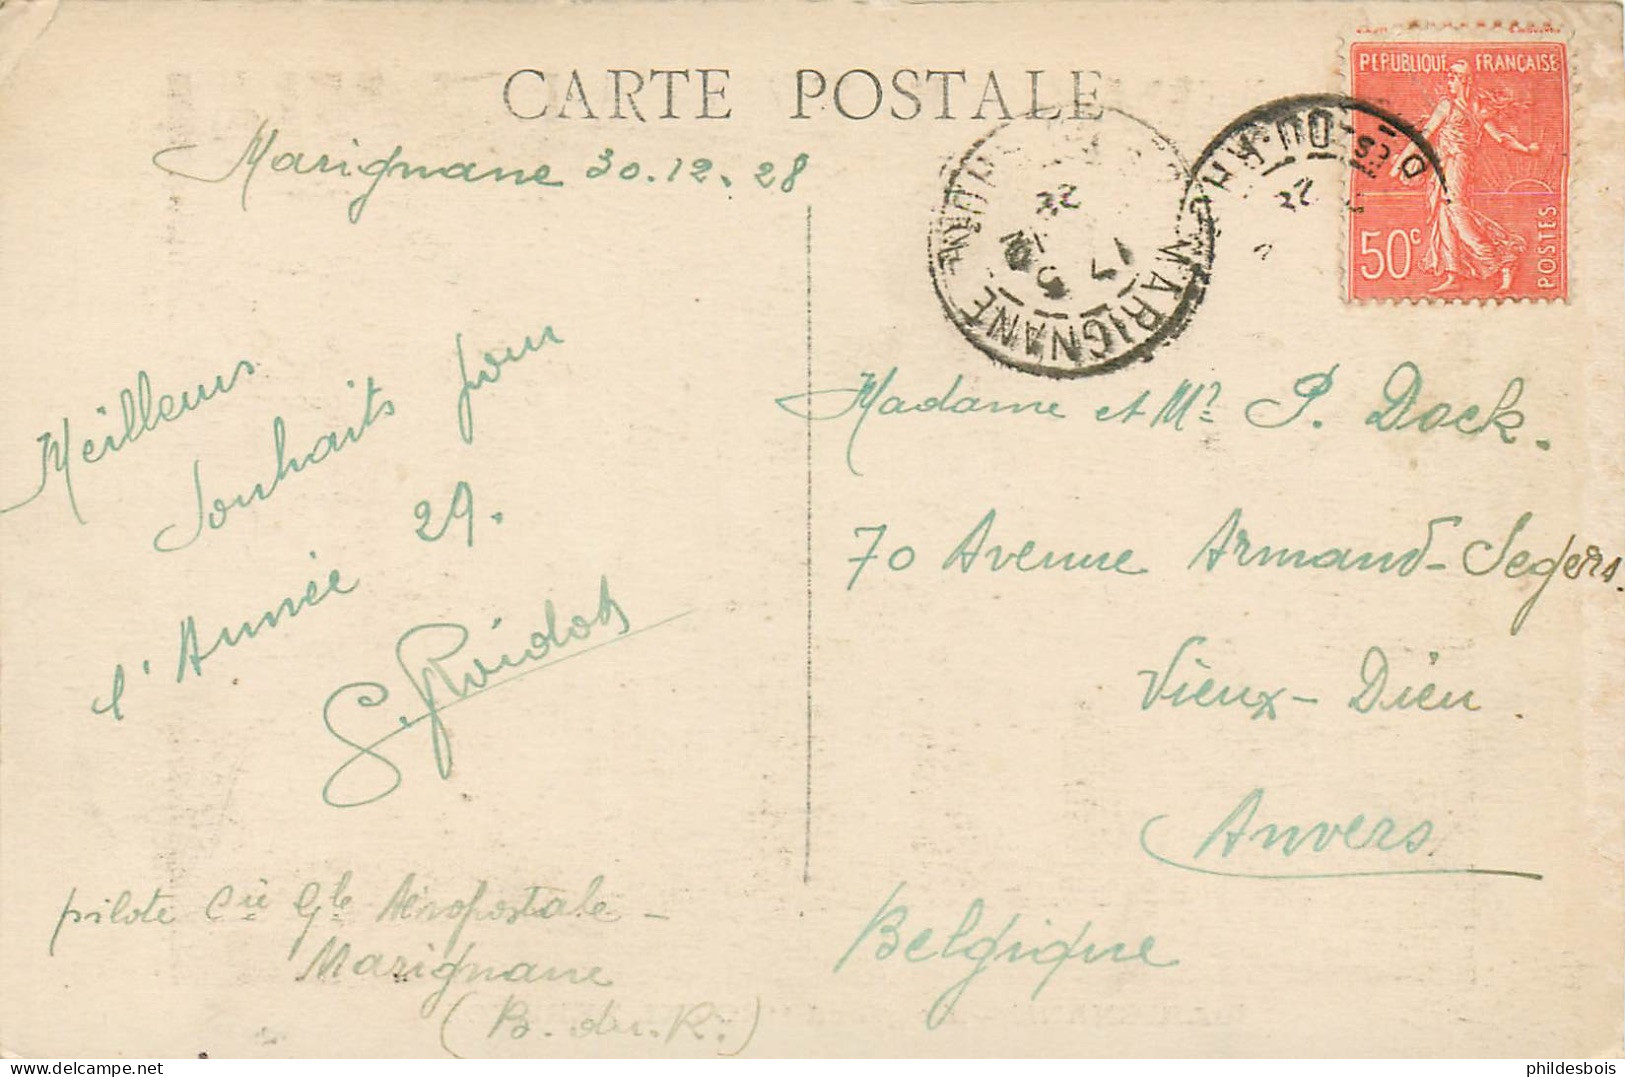 CARTE POSTALE
RÉPUBLIQUE FRANÇAISE
50c
POSTES
MARIGNANE
Marignane 30.12.28
Meilleurs
souhaits pour
l'Année 29.
pilote Cie Gle Aéropostale -
Marignane
(B. du. R.)
Madame et Mr P. Dock.
70 Avenue Armand-Segers.
Vieux-Dieu.
Anvers
Belgique
phildesbois